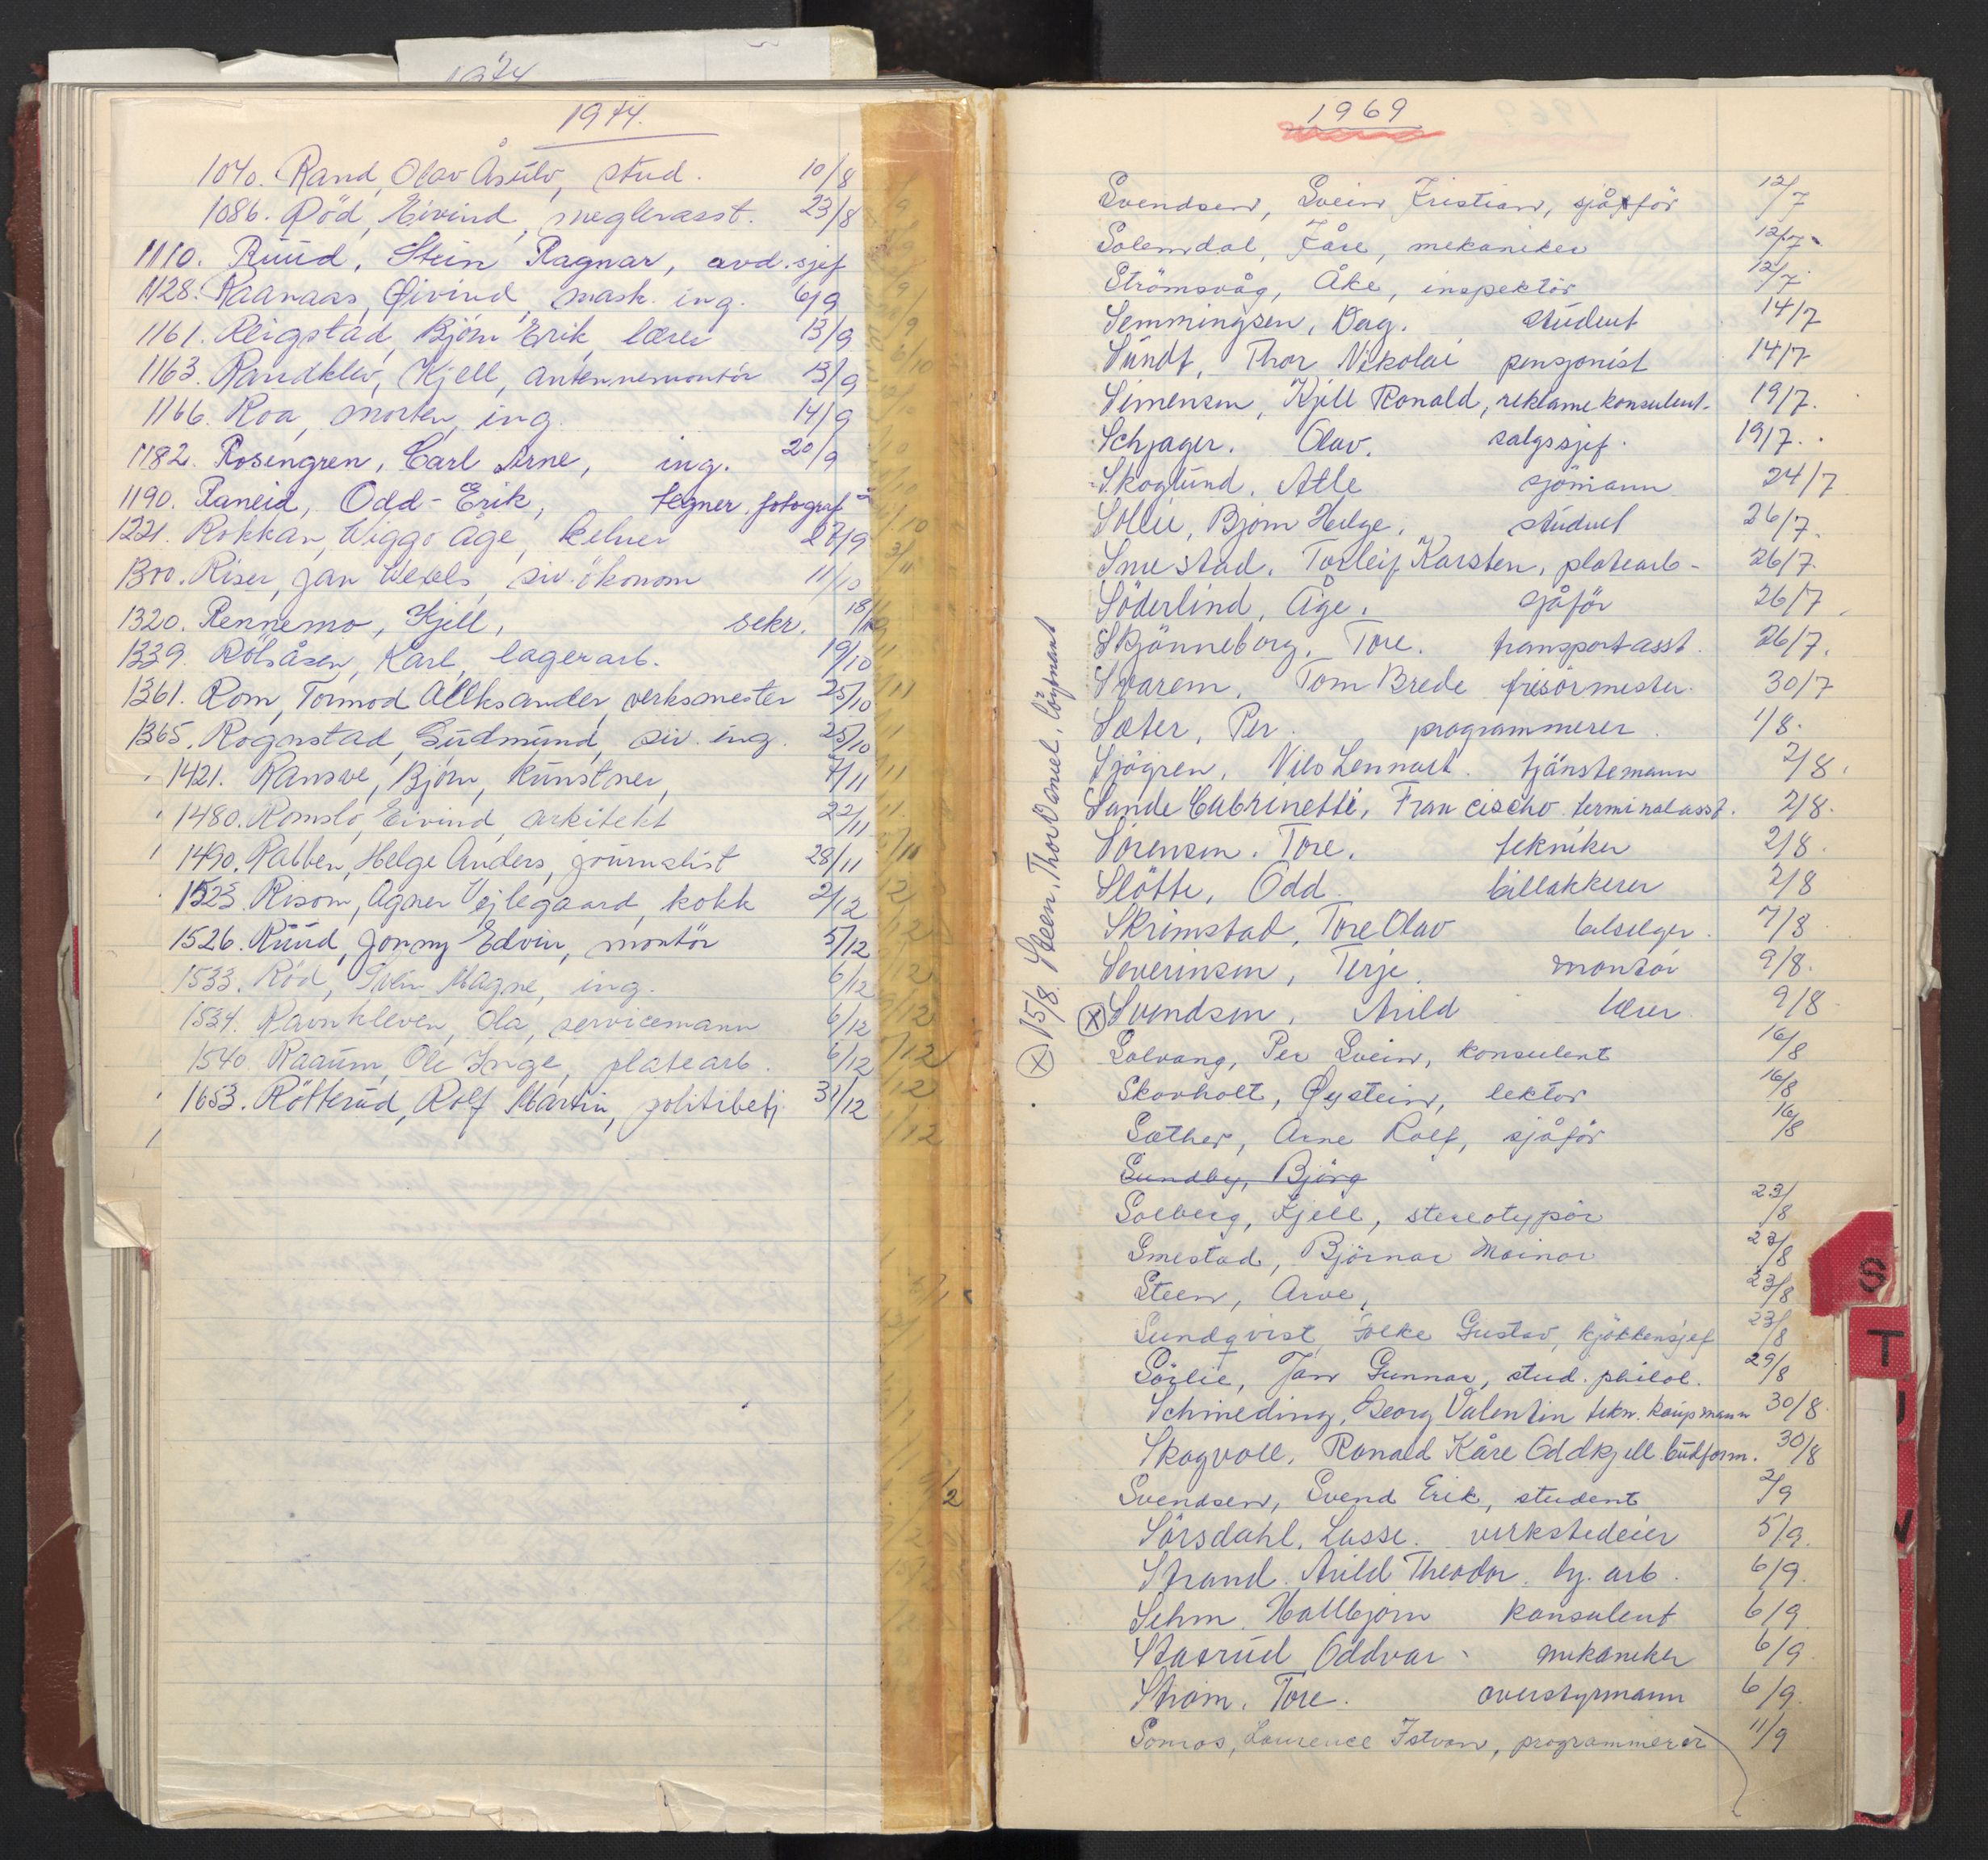 1974.
1040. Rand, Olav Åsulv, stud. 10/8
1086. Död, Eivind, meglerasst. 23/8
1110. Ruud, Stein Ragnar, avd. sjef
1128. Raanaas, Øivind, mask. ing. 6/9
1161. Reigstad, Björn Erik, lærer 13/9
1163. Randklev, Kjell, antennemontör 13/9
1166. Roa, Morten, ing. 14/9
1182. Rosengren, Carl Arne, ing. 20/9
1190. Raneid, Odd-Erik, tegner, fotograf
1221. Rokkan, Viggo Åge, kelner 27/9
1300. Riser, Jan Wessels, siv. økonom 11/10
1320. Rennemo, Kjell, sekr. 18/10
1339. Rölsåsen, Karl, lagerarb. 19/10
1361. Rom, Tormod Alleksander, verksmester 25/10
1365. Rognstad, Gudmund, siv. ing. 25/10
1421. Ransve, Björn, kunstner, 7/11
1480. Romslo, Eivind, arkitekt 22/11
1490. Rabben, Helge Anders, journalist 28/11
1523. Risom, Agner Vejlegaard, kokk 2/12
1526. Ruud, Jonny Edvin, montör 5/12
1533. Röd, Svein Magne, ing. 6/12
1534. Ravnkleven, Ola, servicemann 6/12
1540. Raaum, Ole Inge, platearb. 6/12
1653. Rötterud, Rolf Martin, politibetj. 31/12
1969
Svendsen, Svein Kristian, sjåför 12/7
Solemdal, Kåre, mekaniker 12/7
Strömsvåg, Åke, inspektör 12/7
Semmingsen, Dag. student 14/7
Sundt, Thor Nikolai pensjonist 14/7
Simensen, Kjell Ronald, reklamekonsulent. 19/7.
Schjager. Olav. salgssjef. 19/7.
Skoglund. Atle sjömann 24/7
Sollie, Bjørn Helge. student 26/7.
Smestad. Torleif Karsten, platearb- 26/7.
Söderlind, Åge. sjåför 26/7
Skjönneborg, Tore. transportasst. 26/7.
Svarem. Tom Brede frisörmester. 30/7
Sæter, Per. programmerer. 1/8.
Sjögren, Nils Lennart. tjänstemann 2/8.
Sande Cabrinetti, Francischo terminalasst. 2/8.
Sörensen. Tore. tekniker 2/8.
Slötte, Odd. billakkerer 2/8
Skrimstad, Tore Olav bilselger. 7/8
Severinsen, Terje. montör 9/8.
(X) Svendsen, Arild lærer 9/8
(X) 15/8. Steen, Thor Daniel, löytnant
Solvang, Per Svein, konsulent 16/8
Skovholt, Øystein, lektor 16/8
Sæther, Arne Rolf, sjåför 16/8
Sundby, Björg
Solberg, Kjell, stereotypör 23/8
Smestad, Björnar Mainor 23/8
Steen, Arve, 23/8
Sundqvist, Folke Gustav, kjökkensjef 23/8
Sörlie, Jan Gunnar, stud. philol. 29/8
Schmeding, Georg Valentin tekn. kaupmann 30/8.
Skogvoll, Ronald Kåre Oddkjell budform. 30/8
Svendsen, Svend Erik, student 2/9
Sörsdahl, Lasse. verkstedeier 5/9.
Strand. Arild Theodor. by. arb. 6/9.
Sehm. Hallbjørn konsulent 6/9
Staxrud Oddvar - mekaniker 6/9.
Strøm. Tore. overstyrmann 6/9.
Somos, Laurence Istvan, programmerer 11/9
S
T